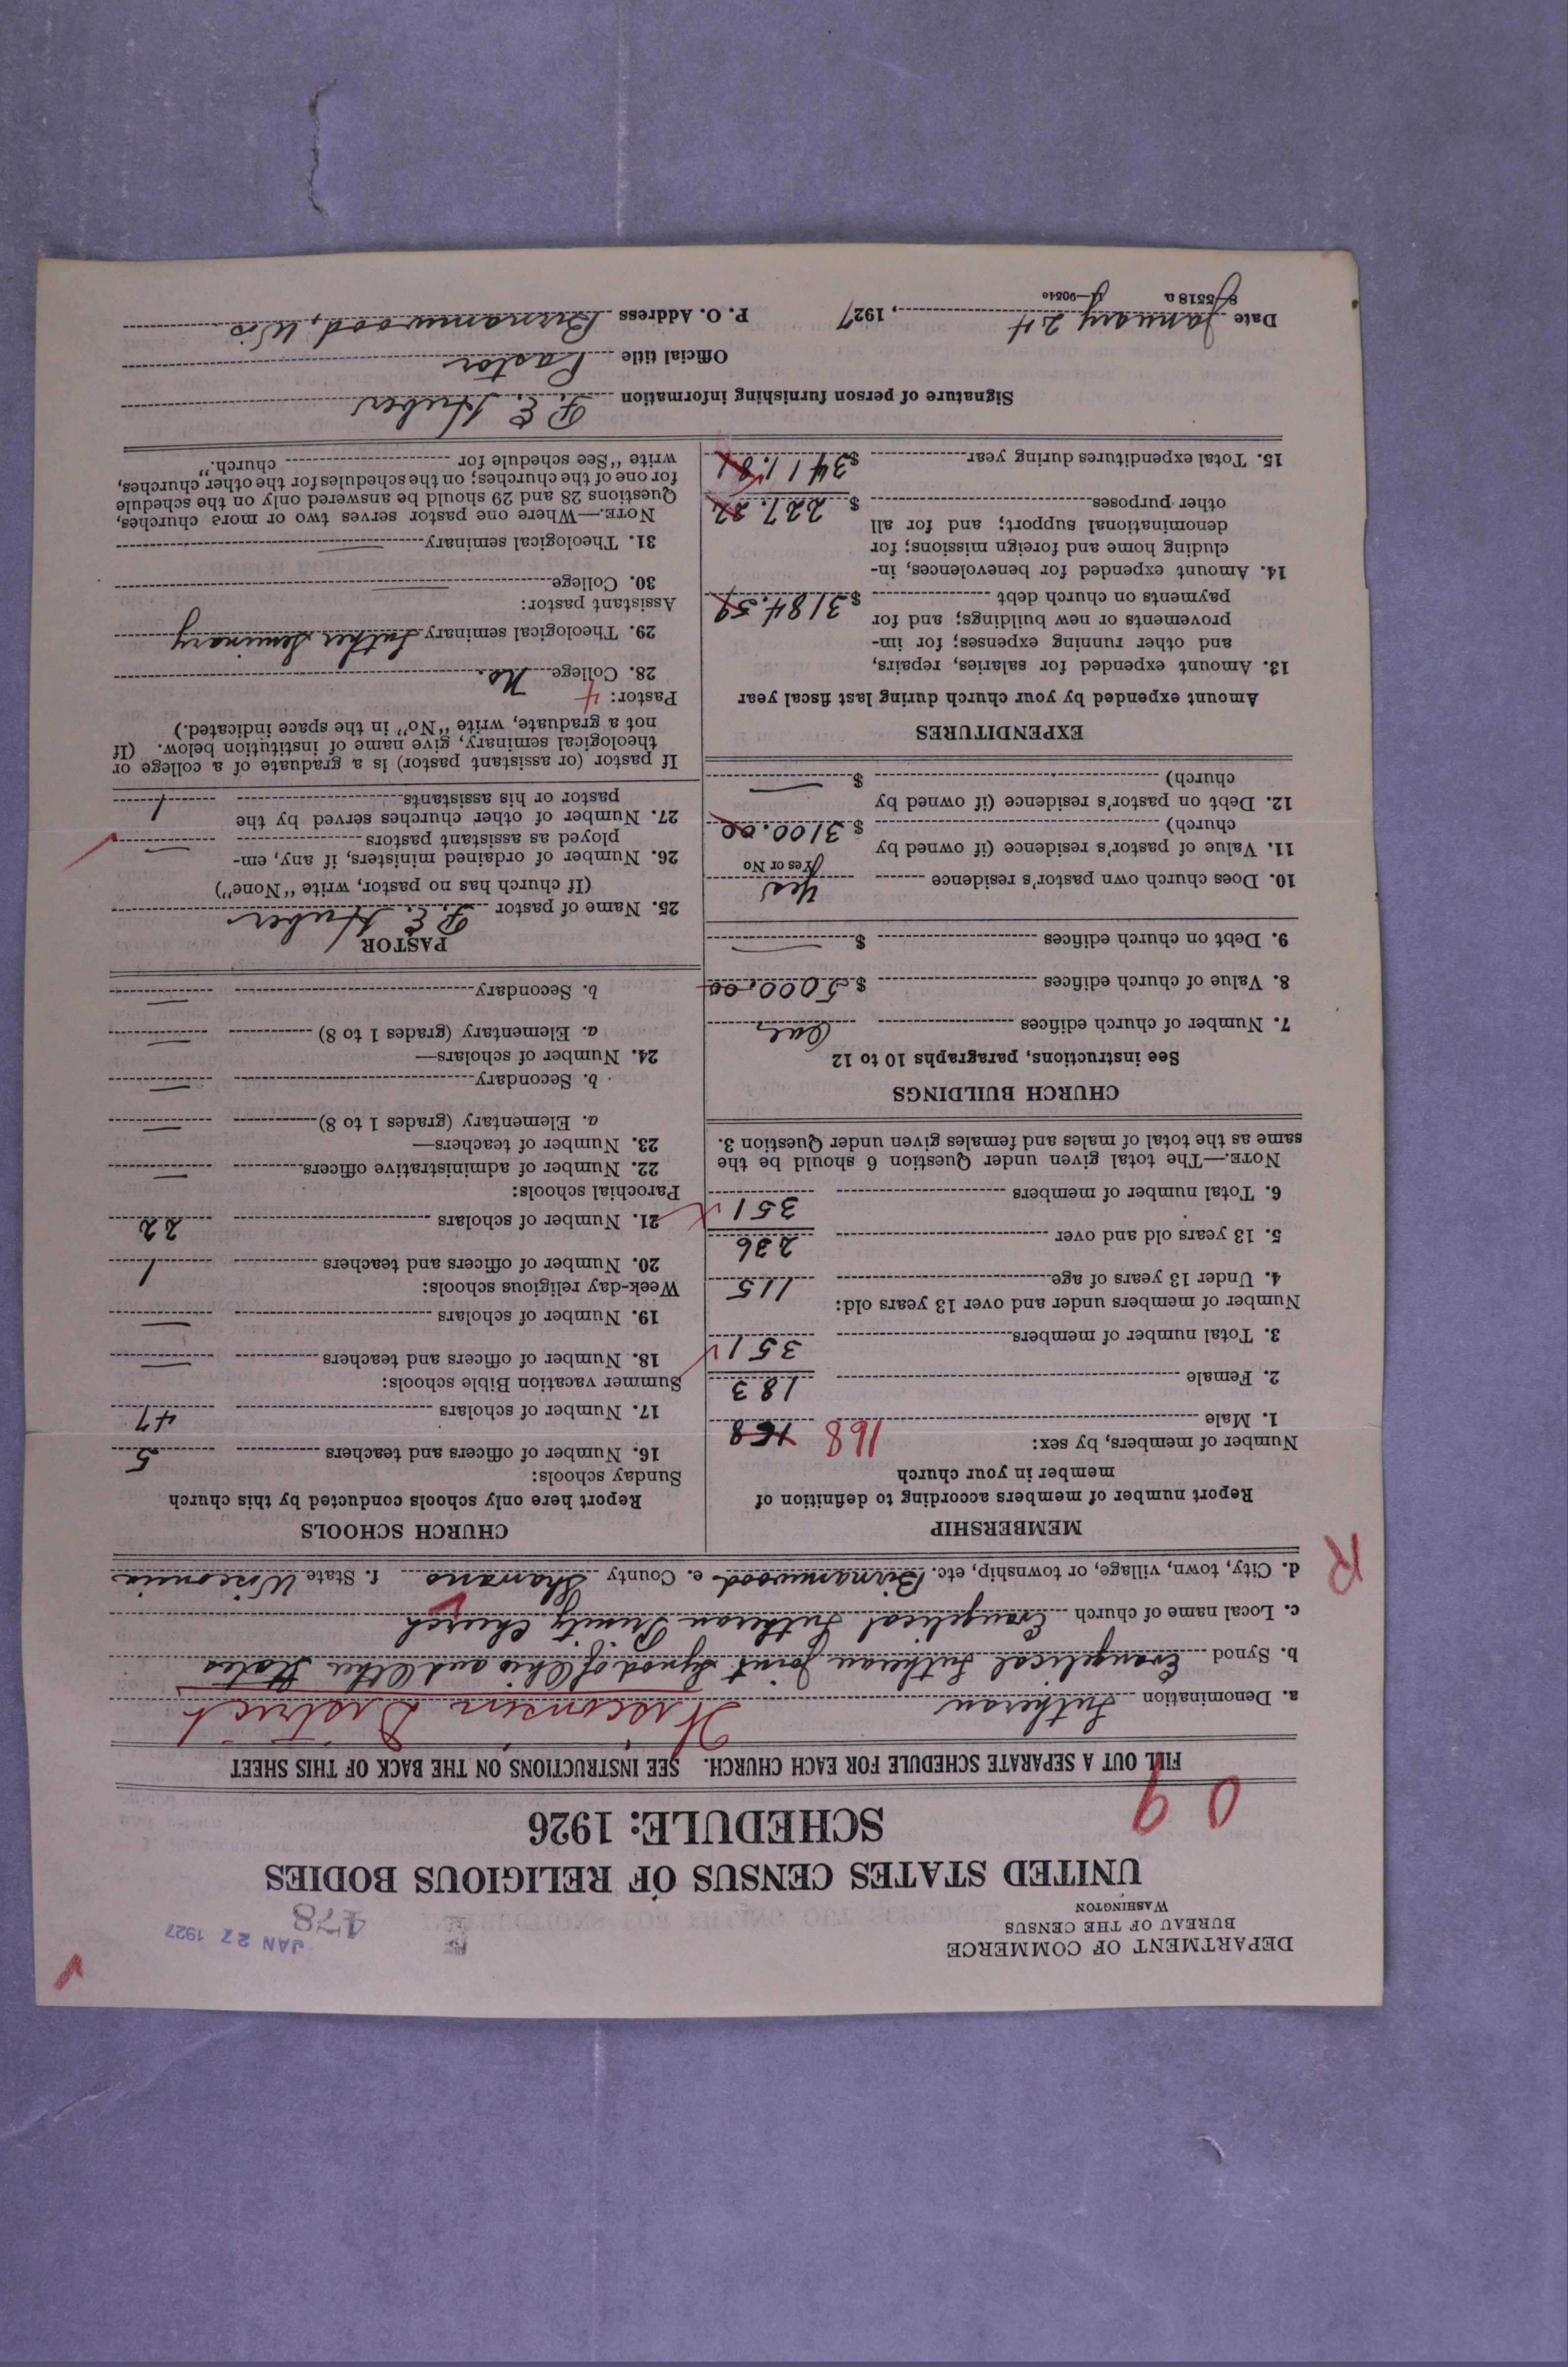 DEPARTMENT OF COMMERCE
BUREAU OF THE CENSUS
WASHINGTON
JAN 27 1927
478
UNITED STATES CENSUS OF RELIGIOUS BODIES
SCHEDULE: 1926
0 9
FILL OUT A SEPARATE SCHEDULE FOR EACH CHURCH. SEE INSTRUCTIONS ON THE BACK OF THIS SHEET
a. Denomination Lutheran Wisconsin District
b. Synod Evangelical Lutheran Joint Synod of Ohio and Other States
c. Local name of church Evangelical Lutheran Trinity Church
d. City, town, village, or township, etc. Birnamwood e. County Shawano f. State Wisconsin
R
MEMBERSHIP
Report number of members according to definition of
member in your church
Number of members, by sex:
1. Male 168 168
2. Female 183
3. Total number of members 351
Number of members under and over 13 years old:
4. Under 13 years of age 115
5. 13 years old and over 236
6. Total number of members 351
NOTE.—The total given under Question 6 should be the
same as the total of males and females given under Question 3.
CHURCH BUILDINGS
See instructions, paragraphs 10 to 12
7. Number of church edifices One
8. Value of church edifices $ 5000.00
9. Debt on church edifices $ —
10. Does church own pastor's residence Yes
Yes or No
11. Value of pastor's residence (if owned by
church) $ 3100.00
12. Debt on pastor's residence (if owned by
church) $ —
EXPENDITURES
Amount expended by your church during last fiscal year
13. Amount expended for salaries, repairs,
and other running expenses; for im-
provements or new buildings; and for
payments on church debt $ 3184.59
14. Amount expended for benevolences, in-
cluding home and foreign missions; for
denominational support; and for all
other purposes $ 227.22
15. Total expenditures during year $ 3411.81
CHURCH SCHOOLS
Report here only schools conducted by this church
Sunday schools:
16. Number of officers and teachers 5
17. Number of scholars 47
Summer vacation Bible schools:
18. Number of officers and teachers —
19. Number of scholars —
Week-day religious schools:
20. Number of officers and teachers 1
21. Number of scholars 22
Parochial schools:
22. Number of administrative officers —
23. Number of teachers—
a. Elementary (grades 1 to 8) —
b. Secondary —
24. Number of scholars—
a. Elementary (grades 1 to 8) —
b. Secondary —
PASTOR
25. Name of pastor P. E. Huber
(If church has no pastor, write "None")
26. Number of ordained ministers, if any, em-
ployed as assistant pastors —
27. Number of other churches served by the
pastor or his assistants 1
If pastor (or assistant pastor) is a graduate of a college or
theological seminary, give name of institution below. (If
not a graduate, write "No" in the space indicated.)
Pastor: 4
28. College No.
29. Theological seminary Luther Seminary
Assistant pastor:
30. College —
31. Theological seminary —
NOTE.—Where one pastor serves two or more churches,
Questions 28 and 29 should be answered only on the schedule
for one of the churches; on the schedules for the other churches,
write "See schedule for church."
Signature of person furnishing information P. E. Huber
Official title Pastor
Date January 24, 1927 P. O. Address Birnamwood, Wis
8—5518 a 11—9054c